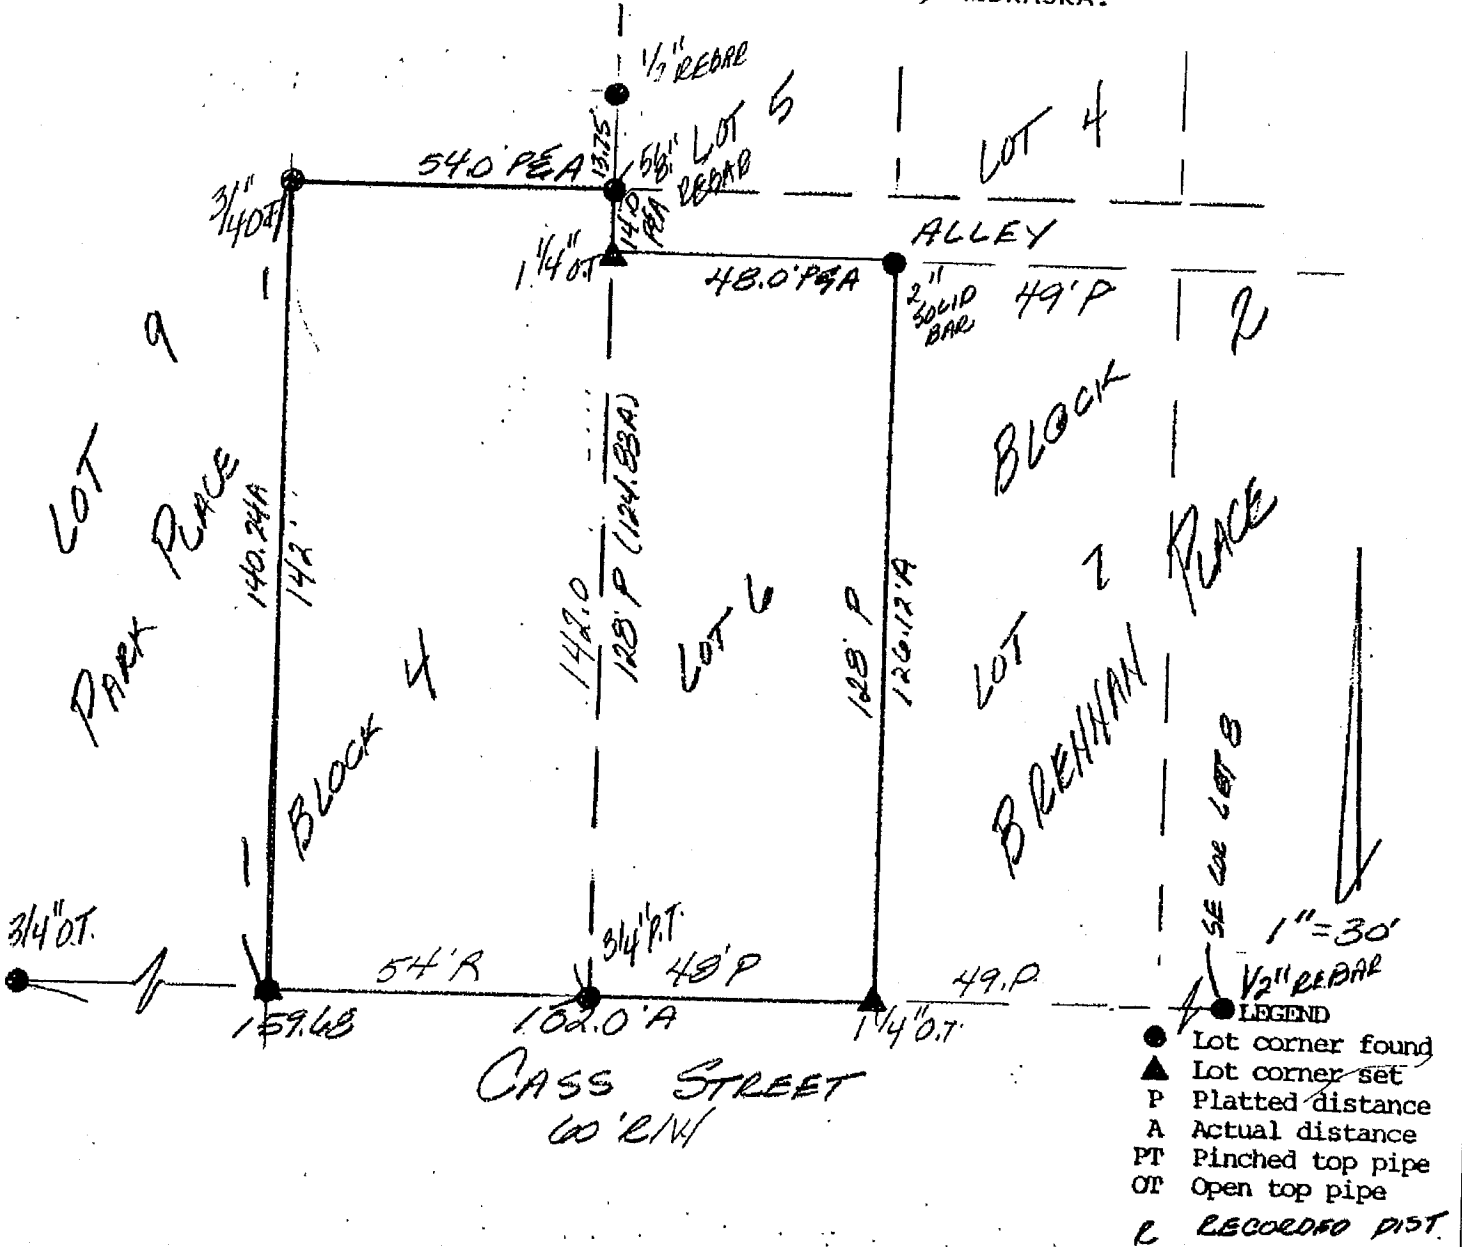 NEBRASKA.
1/2" REBAR
LOT 5
LOT 4
13.75
54.0' P&A
5/8" REBAR
3/4 O.T.
14.0 P&A
1 1/4" O.T.
ALLEY
48.0' P&A
2" SOLID BAR
49' P
LOT 9
PARK PLACE
BLOCK 2
140.24A
142'
142.0
128' P (124.83A)
LOT 6
128' P
126.12'A
LOT 7
BRENNAN PLACE
BLOCK 4
SE COR LOT 8
1"=30'
3/4" O.T.
54' R
3/4" P.T.
48' P
49.P.
1/2" REBAR
159.68
102.0' A
1 1/4" O.T.
CASS STREET
60' R/W
LEGEND
Lot corner found
Lot corner set
P Platted distance
A Actual distance
PT Pinched top pipe
OT Open top pipe
R RECORDED DIST.